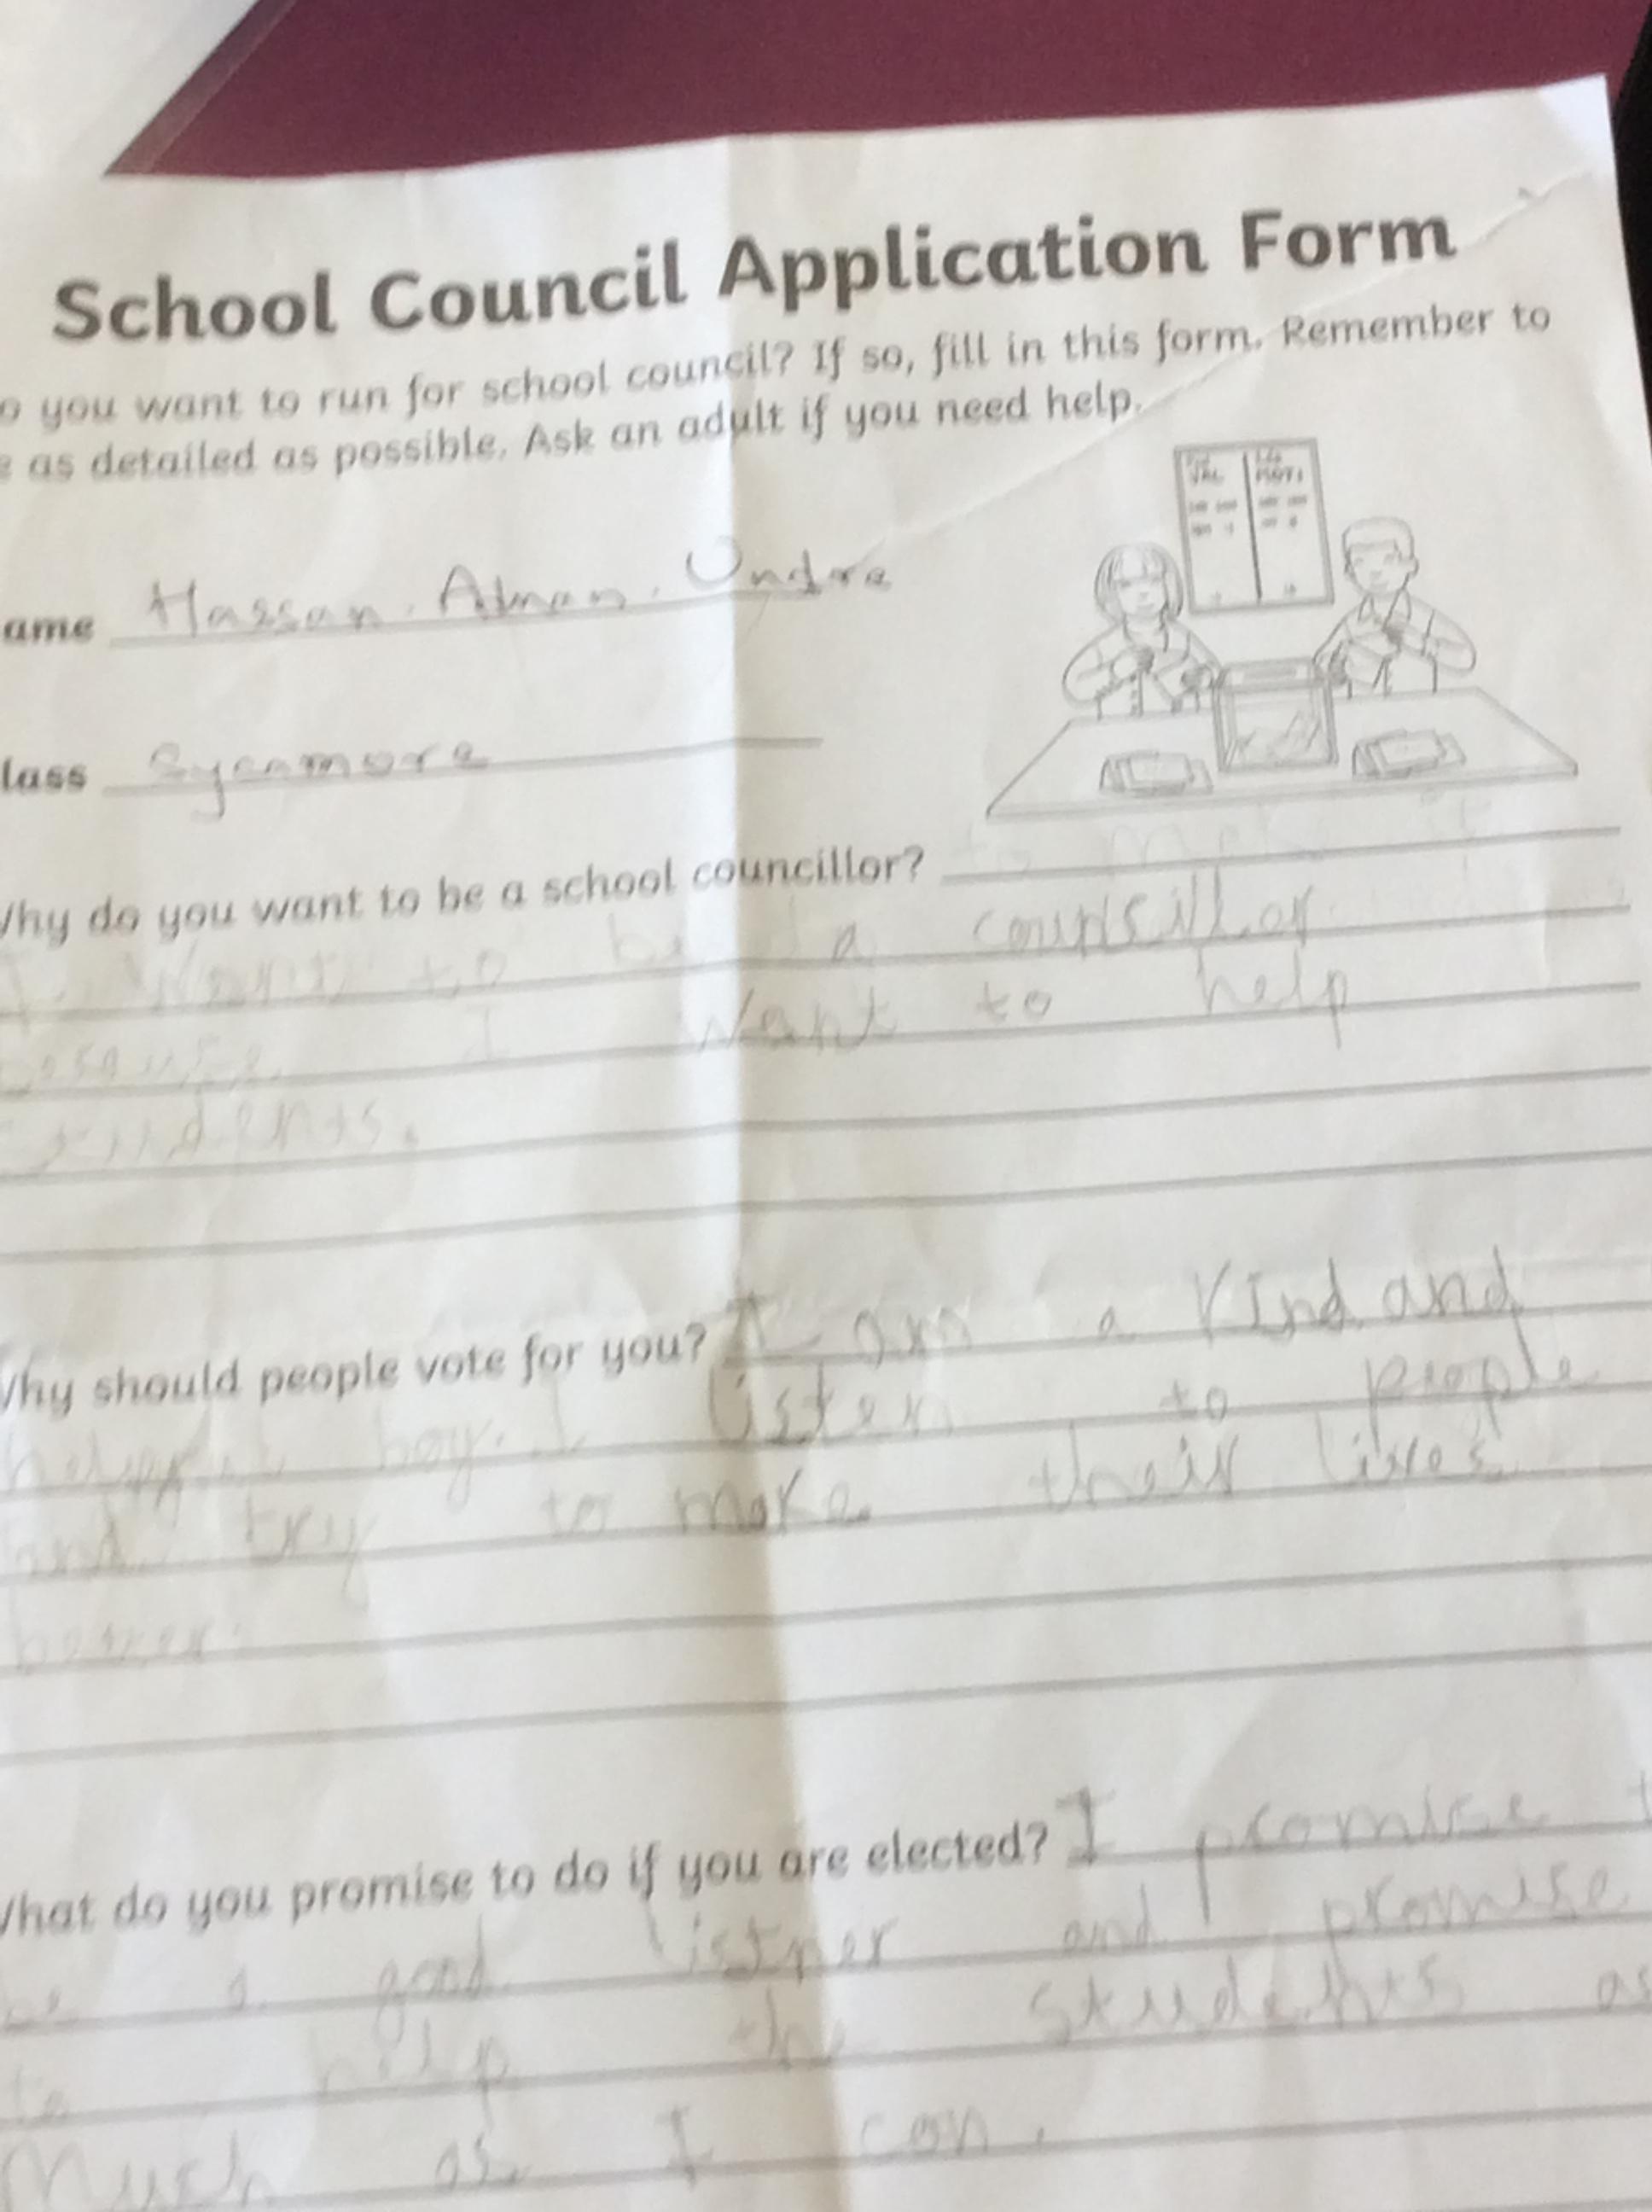 School Council Application Form
o you want to run for school council? If so, fill in this form. Remember to
e as detailed as possible. Ask an adult if you need help.
ame Hassan. Adnan. Undre
lass Sycamore
Why do you want to be a school councillor?
I want to be a counsillor
because I want to help
students.
Why should people vote for you? I am a kind and
helpful boy. I listen to people
and try to make their lives
better.
What do you promise to do if you are elected? I promise t
be a good listner and promise
to help the students as
Much as I can.